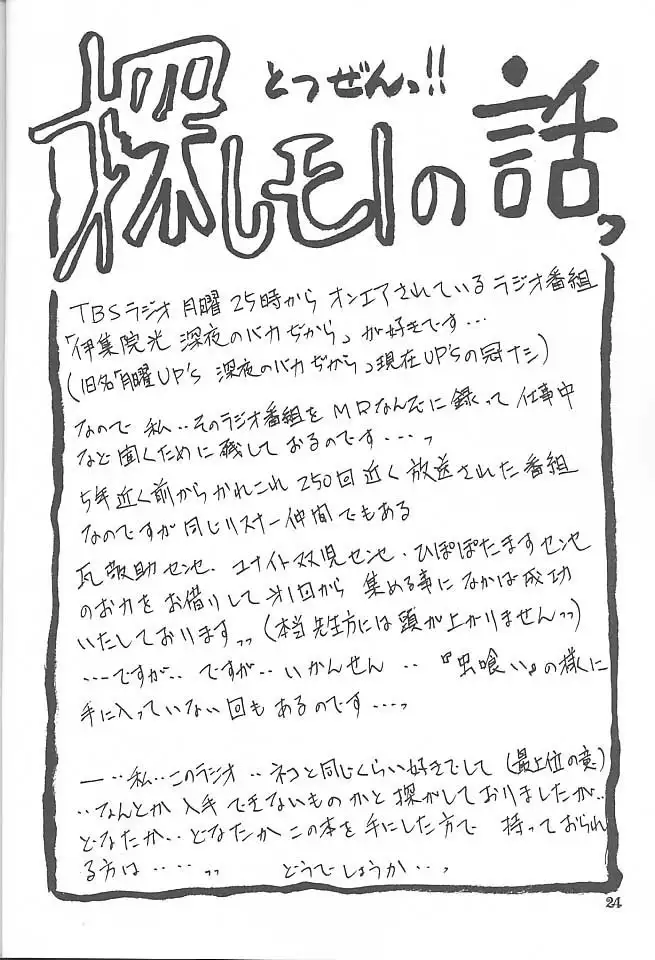 とつぜんっ!!
探しモノの話っ
TBSラジオ 月曜 25時から オンエアされている ラジオ番組
「伊集院光 深夜のバカぢから」が好きです…
(旧名「月曜UP'S 深夜のバカぢから」現在UP'Sの冠ナシ)
なので 私‥そのラジオ番組を MDなんぞに録って 仕事中
など聞くために 残しておるのです‥‥っ
5年近く前から かれこれ 250回近く放送された番組
なのですが 同じリスナー仲間でもある
瓦敬助センセ、ユナイト双児センセ・ひぽぽたますセンセ
のお力をお借りして 第1回から 集める事に なかば成功
いたしております っっ (本当 先生方には頭が上がりませんっっ)
‥‥ですが‥ ですが‥ いかんせん ‥ 『虫喰い』の様に
手に入っていない回も あるのです‥‥っ
―‥私‥このラジオ‥ネコと同じくらい好きでして(最上位の意)
‥なんとか入手できないものかと探がしておりましたが‥
どなたか‥どなたか この本を手にした方で 持っておられ
る方は‥‥っっ どうでしょうか‥っ
24